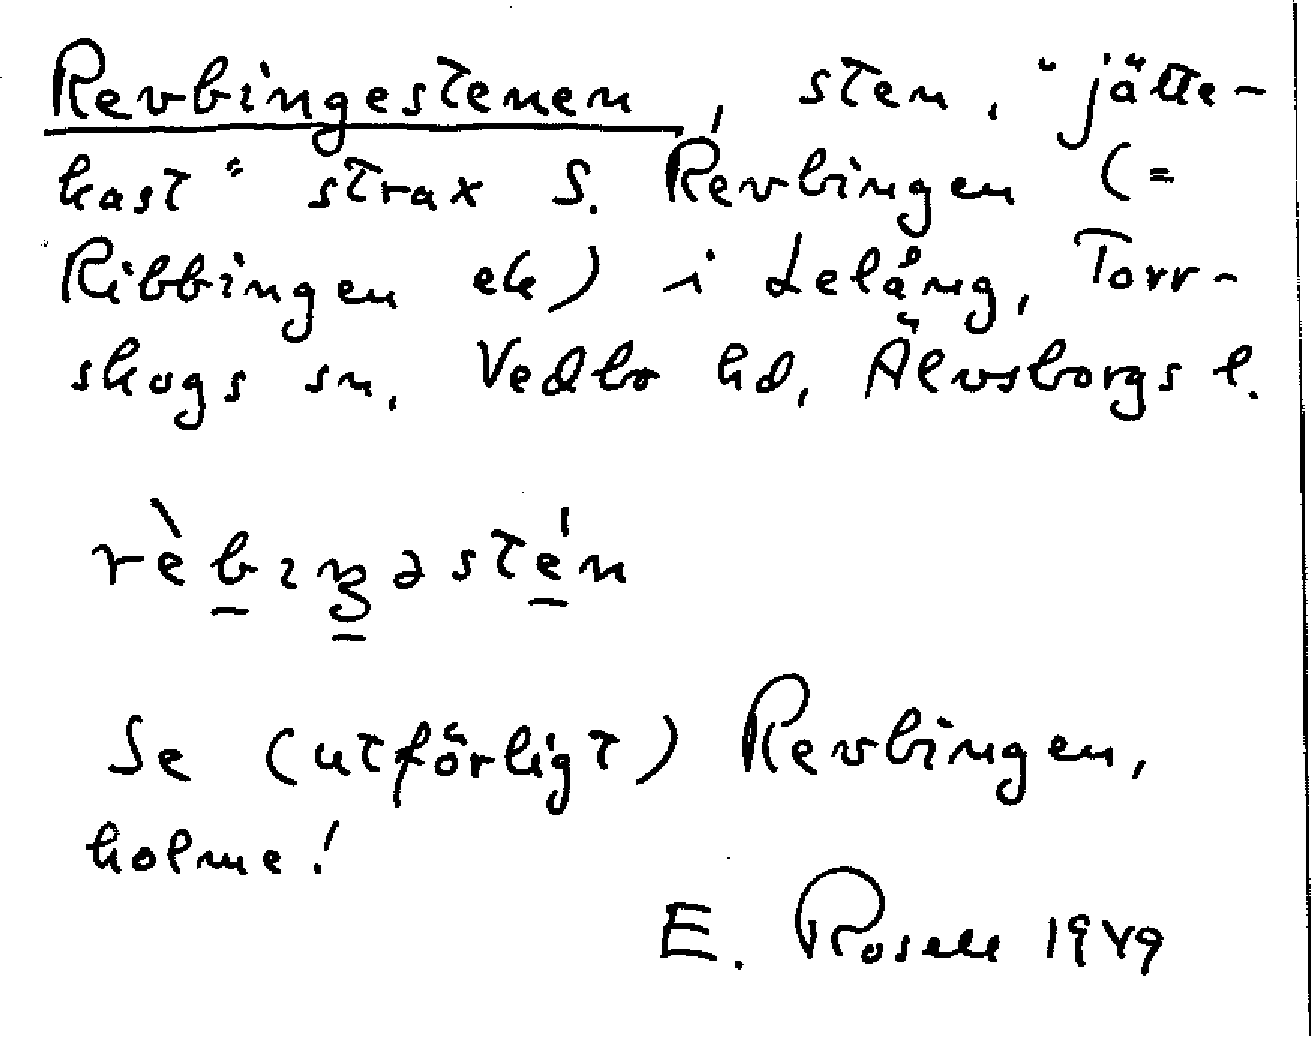 Revbingestenen, sten, "jätte-
kast" strax S. Revbingen (=
Ribbingen ek) i Lelång, Torr-
skogs sn, Vedbo hd, Älvsborgs l.
rèbıŋəstén
Se (utförligt) Revbingen,
holme!
E. Rosell 1949